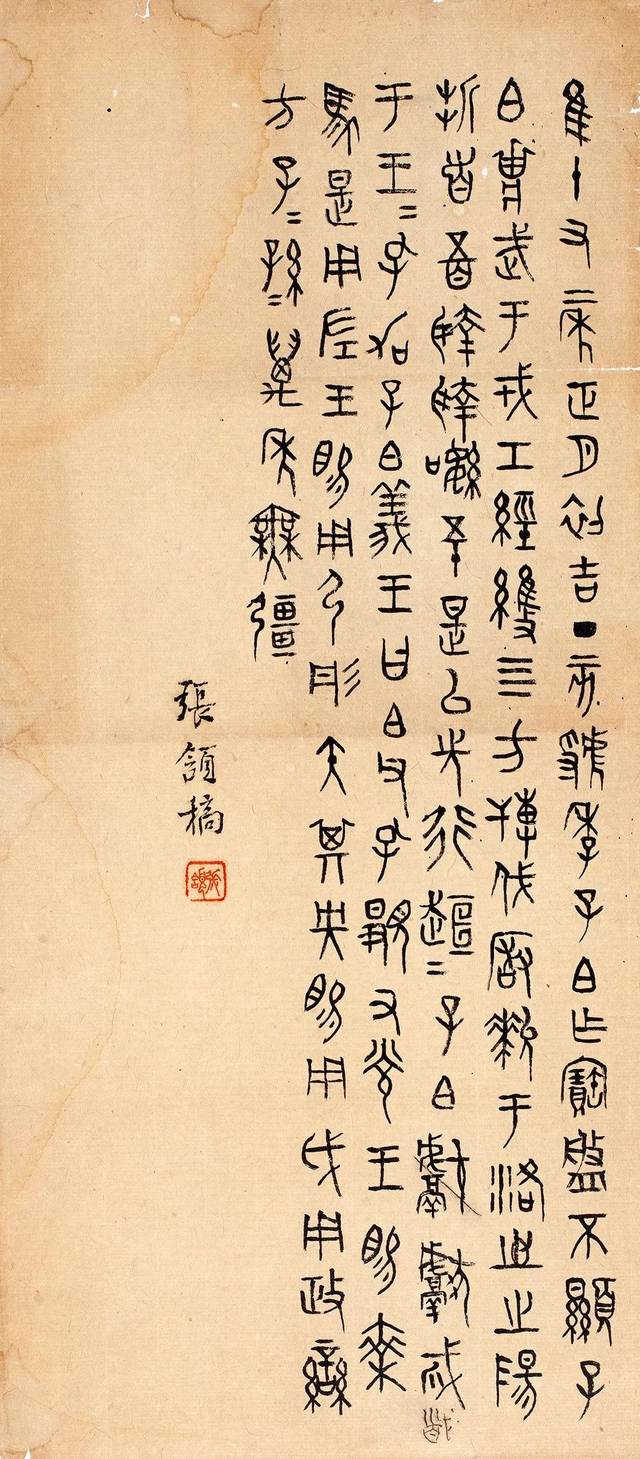 隹十又二年正月初吉丁亥虢季子白乍寶盤不顯子
白壯武于戎工經維四方搏伐厰狁于洛之陽
折首五百執執訊五十是以先行趄=子白獻獻戒馘
于王=孔加子白義王曰白父孔顯又光王賜乘
馬是用左王賜用弓彤矢其央賜用戉用政蠻
方子=孫=萬年無疆
張頷稿
張頷